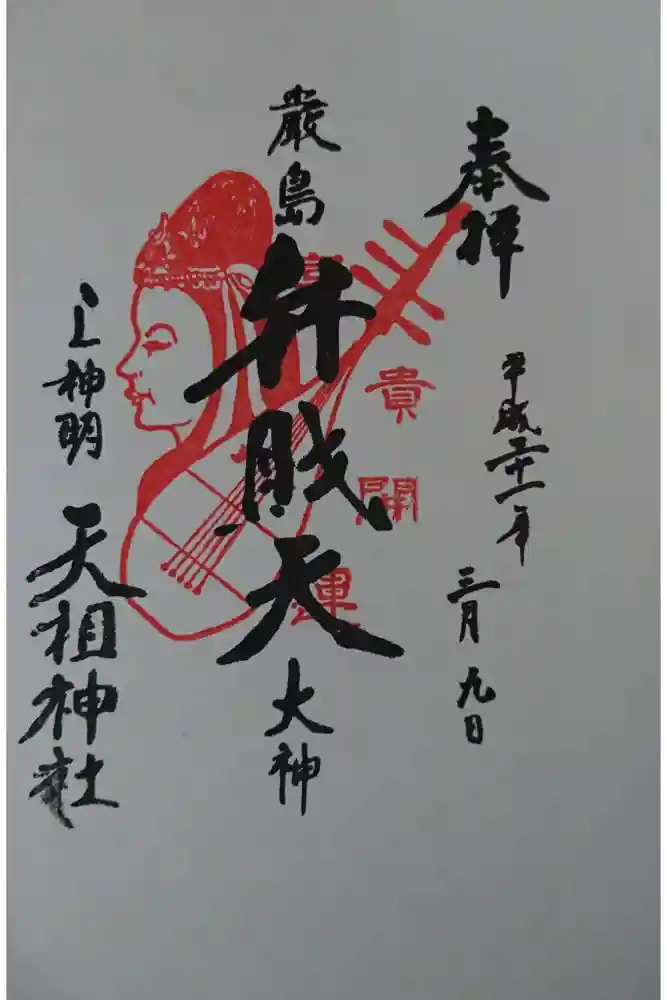 奉拝
平成三十一年 三月九日
厳島弁財天大神
富貴開運
上神明
天祖神社